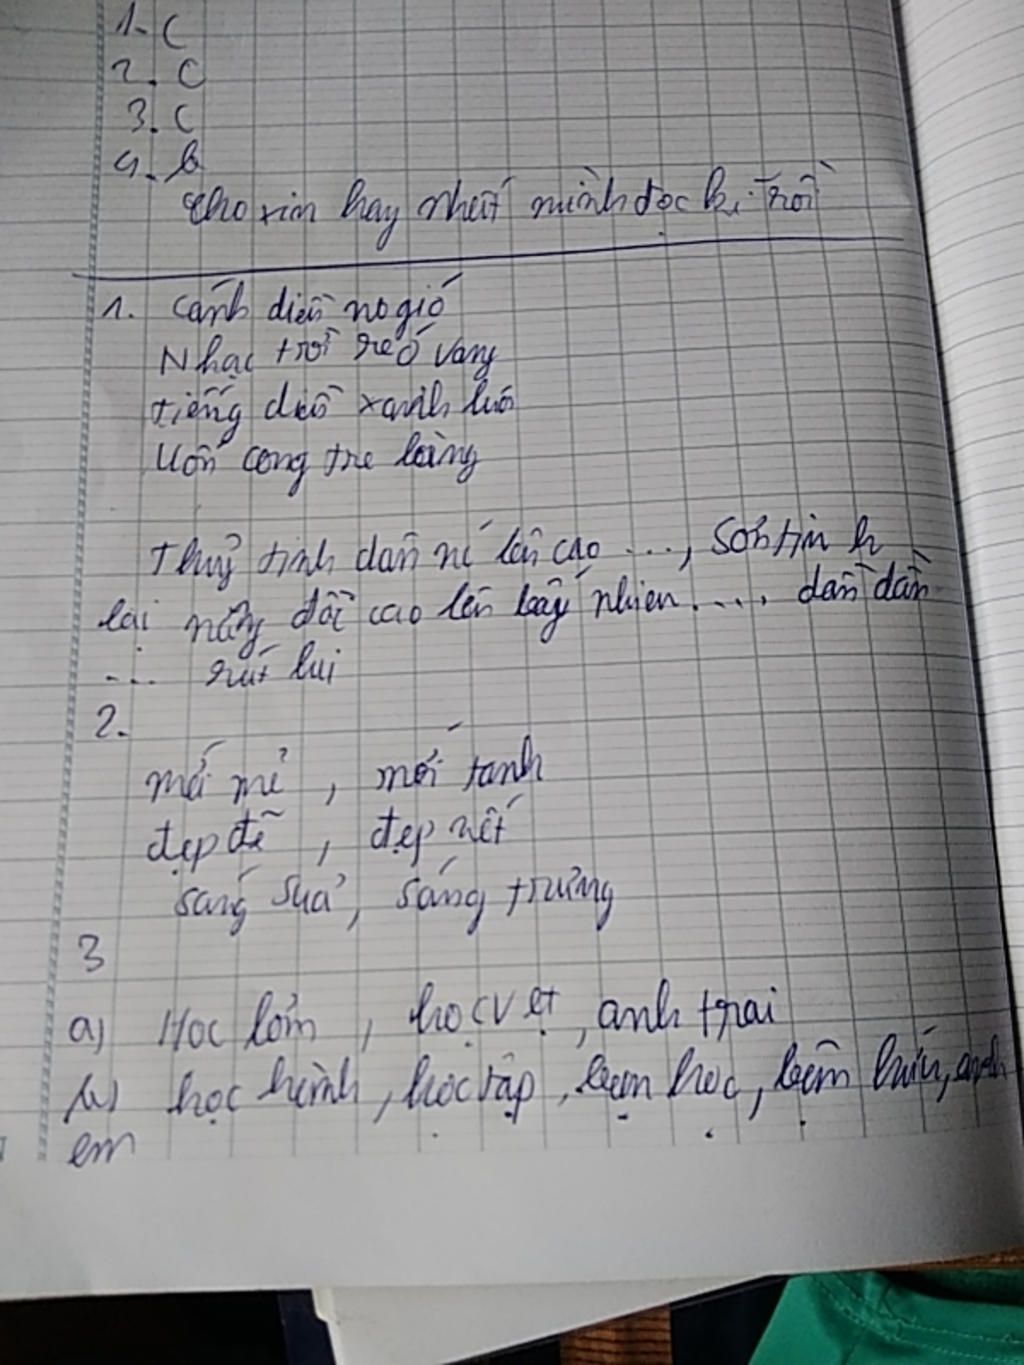 1. C
2. C
3. C
4. b
cho xin hay nhất mình đọc kĩ rồi
1. Cánh diều no gió
Nhạc trời réo vang
tiếng diều xanh lúa
Uốn cong tre làng
Thuỷ tinh dâng nước lên cao ..., Sơn tinh
lại nâng đồi cao lên bấy nhiêu. ..., dần dần
... rút lui
2.
mới mẻ, mới tanh
đẹp đẽ, đẹp nết
sáng sủa, sáng trưng
3
a) Học lỏm, học vẹt, anh trai
b) học hành, học tập, bạn học, anh
em